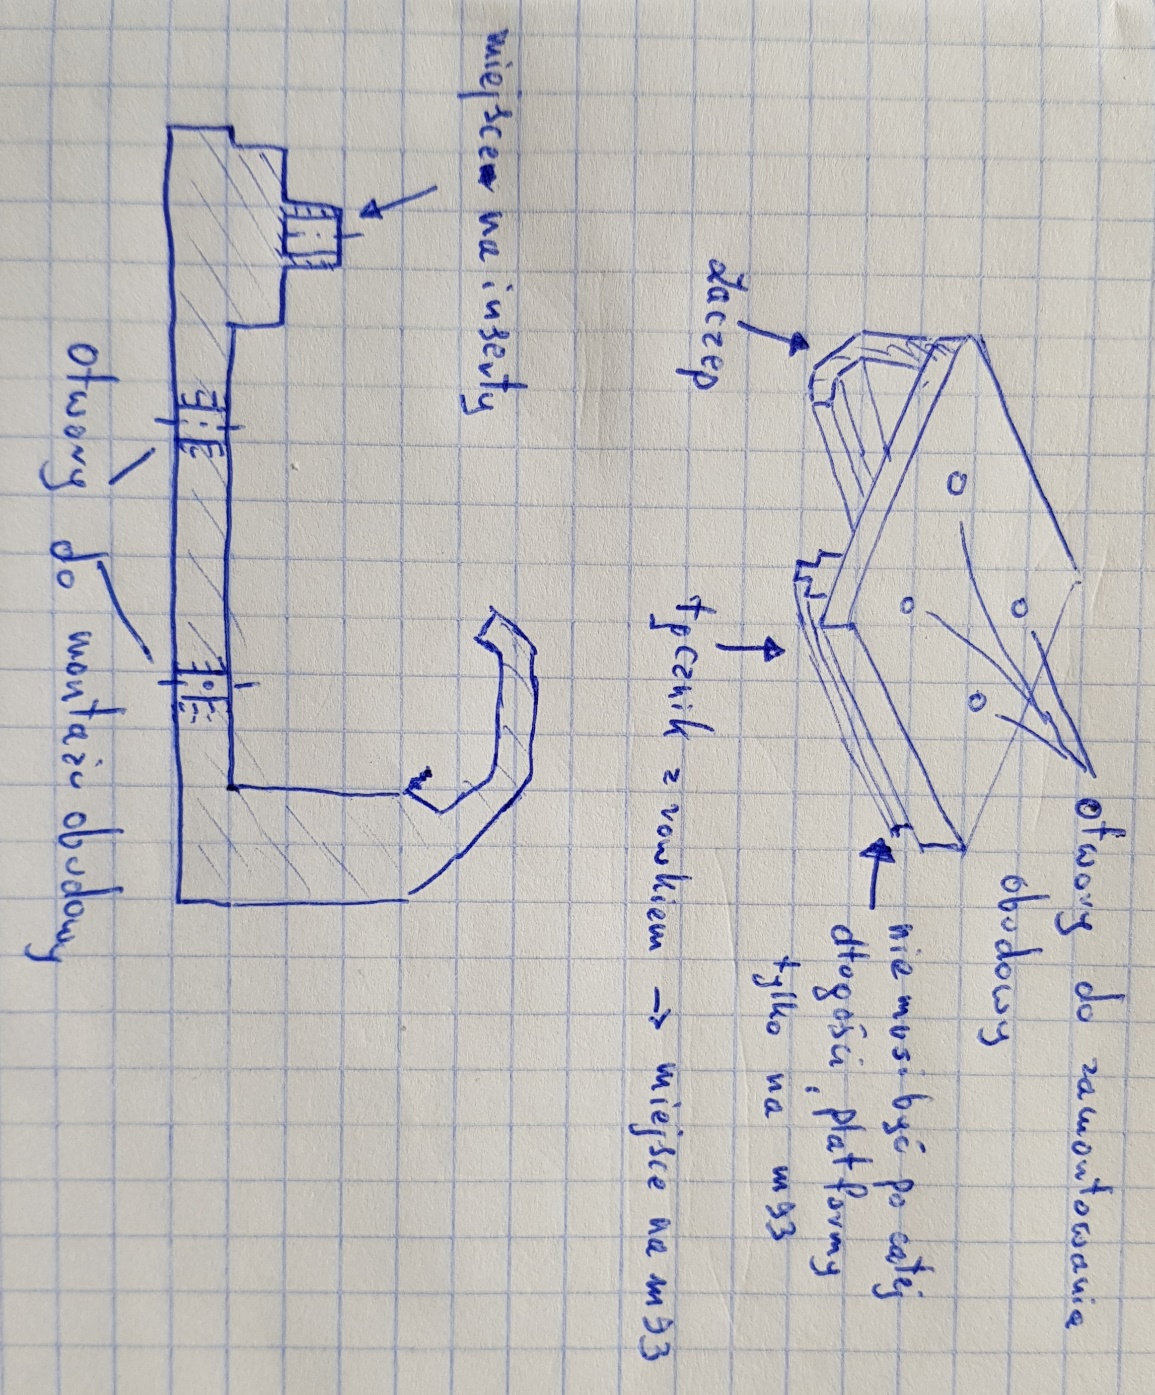 otwory do zamontowania
obudowy
nie musi być po całej
długości, platformy
tylko na m93
zaczep
tpcznik z rowkiem → miejsce na m93
miejsce na inserty
otwory do montażu obudowy